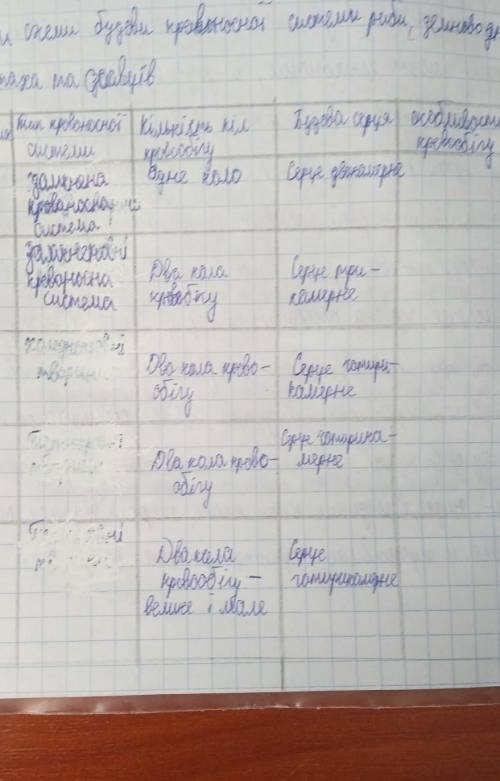 схеми будови кровоносної системи риби, земново
птаха та ссавців
Тип кровоносної системи
Кількість кіл кровообігу
Будова серця
особливості кровообігу
замкнена кровоносна система
Одне коло
Серце двокамерне
кровоносна система
Два кола кровобігу
Серце три-
камерне
холоднокровні тварини
Два кола крово-
обігу
Серце чотири-
камерне
Два кола крово-
обігу
Серце чотирика-
мерне
Два кола
кровообігу –
велике і мале
Серце
чотирикамерне